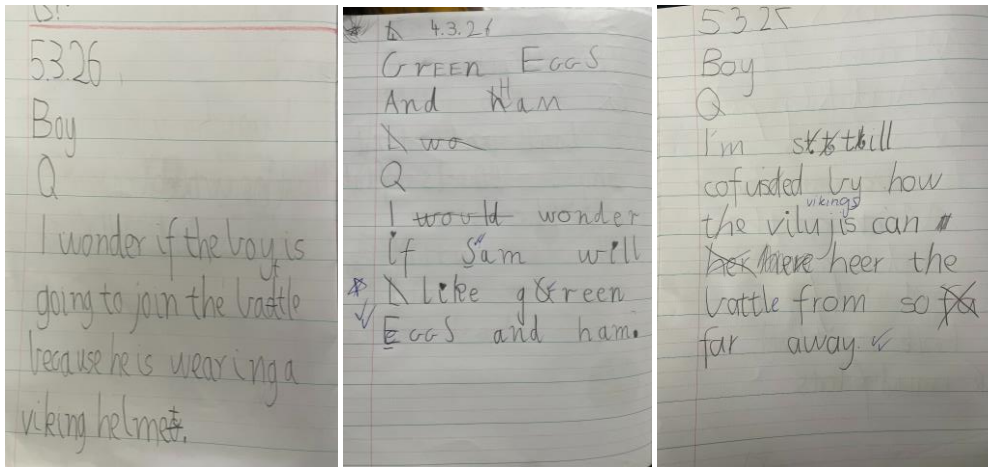 5.3.26
Boy
Q
I wonder if the boy is
going to join the battle
because he is wearing a
viking helmet.
4.3.26
Green Eggs
And Ham
Q
I would wonder
if Sam will
like green
Eggs and ham.
5.3.25
Boy
Q
I'm still
cofusded by how
vikings
the vilujis can
heer the
battle from so
far away.